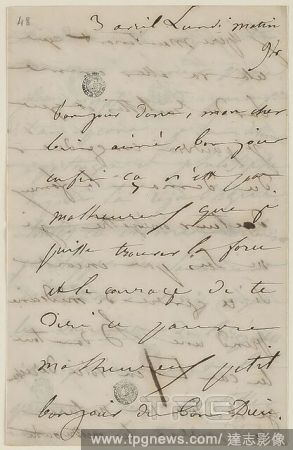 48
3 avril Lundi matin
9h
bonjour donc, mon cher
bien aimé, bonjour
enfin ça n'est pas
malheureux que je
puisse trouver la force
et le courage de te
dire ce pauvre
malheureux petit
bonjour de Bon Dieu.
TPG
www.tpgnews.com / 達志影像